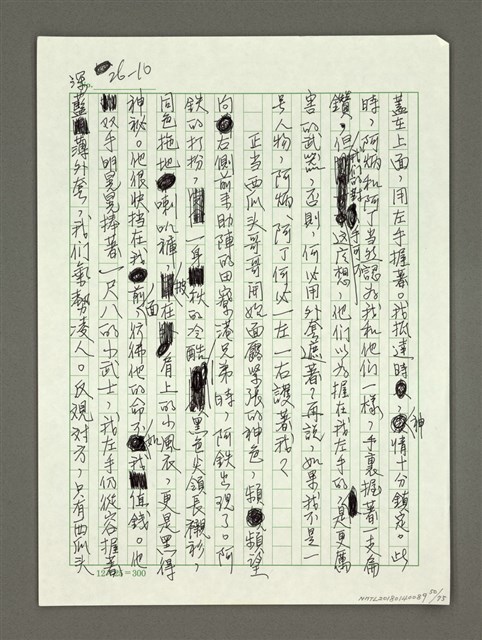 26-10
蓋在上面，用左手握着。我抵達時，神情十分鎮定。此
時，阿炳和阿丁当然認为我和他们一樣，手裏握着一支扁
鑽，但我们的對手可不这麽想，他们以为握在我左手的，是更厲
害的武器，否則，何必用外套遮着？再說，如果我不是一
号人物，阿炳、阿丁何必一左一右護着我？
正当西瓜头哥哥開始面露緊張的神色，頻頻望
向右側前來助陣的田寮港兄弟時，阿鉄出現了。阿
鉄的打扮，一身鉄的冷酷，黑色尖領長襯衫，
同色拖地喇叭褲，披在肩上的小風衣，更是黑得
神祕。他很快擋在我面前，彷彿他的命不如我值錢。他
双手明晃晃捧着一尺八的小武士，我左手仍從容握着
深藍薄外套，我们氣勢凌人。反观对方，只有西瓜头
12×25=300
NMTL20180140089 50/75